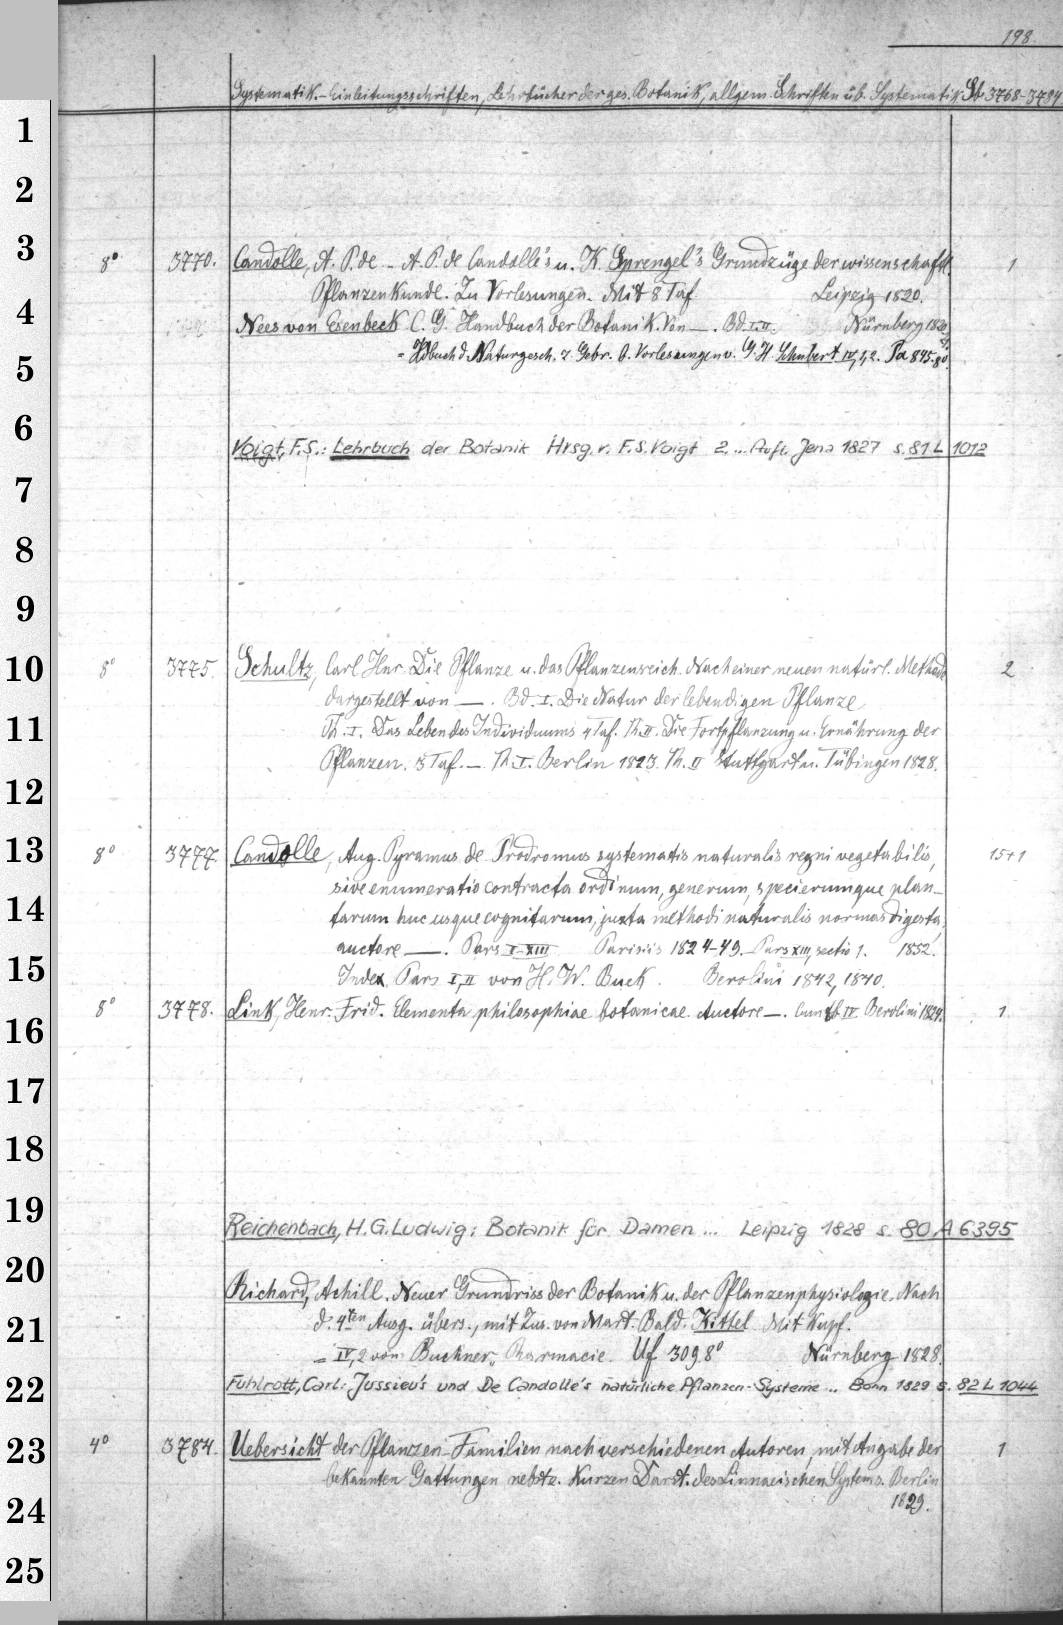 198.
Systematik. - Einleitungsschriften, Lehrbücher der ges. Botanik, allgem. Schriften üb. Systematik St 3768-3784
1
2
3
8° 3770. Candolle, A. P. de - A. P. de Candolle's u. K. Sprengel's Grundzüge der wissenschaftl. 1
Pflanzenkunde. Zu Vorlesungen. Mit 8 Taf. Leipzig 1820.
4
Nees von Esenbeck C. G. Handbuch der Botanik. Von —. Bd. I. II. Nürnberg 1820
= Hdbuch d. Naturgesch. z. Gebr. b. Vorlesungen v. G. H. Schubert IV, 1, 2. Pa 845. 8°.
5
6
Voigt, F.S.: Lehrbuch der Botanik Hrsg. v. F.S. Voigt 2. ... Aufl. Jena 1827 s. 81 L 1012
7
8
9
10
8° 3775. Schultz, Carl Hnr. Die Pflanze u. das Pflanzenreich. Nach einer neuen natürl. Methode 2
dargestellt von —. Bd. I. Die Natur der lebendigen Pflanze
11
Th. I. Das Leben des Individuums 4 Taf. Th. II. Die Fortpflanzung u. Ernährung der
Pflanzen. 3 Taf. — Th. I. Berlin 1823. Th. II Stuttgart u. Tübingen 1828.
12
13
8° 3777. Candolle, Aug. Pyramus de Prodromus systematis naturalis regni vegetabilis, 15+1
sive enumeratio contracta ordinum, generum, specierumque plan-
14
tarum huc usque cognitarum, juxta methodi naturalis normas digesta,
auctore —. Pars I-XIII Parisiis 1824-49. Pars XIII, sectio 1. 1852.
15
Index Pars I, II von H. W. Buek. Berolini 1842, 1840.
8° 3778. Link, Henr. Frid. Elementa philosophiae botanicae. Auctore —. Cum tb IV. Berolini 1824. 1
16
17
18
19
Reichenbach, H.G. Ludwig: Botanik für Damen ... Leipzig 1828 s. 80 A 6395
20
Richard, Achill. Neuer Grundriss der Botanik u. der Pflanzenphysiologie. Nach
21
d. 4ten Ausg. übers., mit Zus. von Mart. Bald. Kittel. Mit Kupf.
= IV, 2 von Buchner, Pharmacie. Uf 309 8° Nürnberg 1828.
22
Fuhlrott, Carl: Jussieu's und De Candolle's natürliche Pflanzen-Systeme ... Bonn 1829 s. 82 L 1044
23
4° 3784. Uebersicht der Pflanzen-Familien nach verschiedenen Autoren, mit Angabe der 1
bekannten Gattungen nebst e. kurzen Darst. des Linnaeischen Systems. Berlin
24
1829.
25